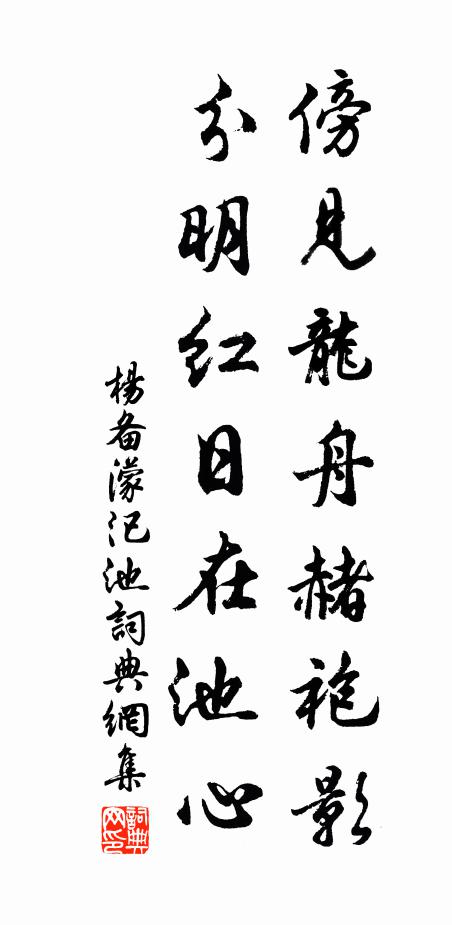 傍見龍舟赭袍影
分明紅日在池心
楊备濛汜池詞典網集
詞典网印